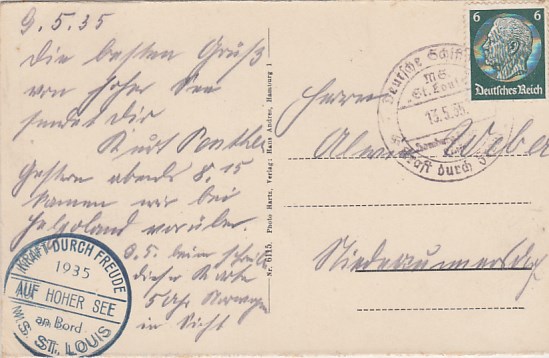 9.5.35
Die besten Grüße
von hoher See
sendet dir
Kurt
Gestern abends 8.15
kamen wir bei
Helgoland vorüber.
9.5. beim
dieser Karte
5 Uhr Norwegen
in Sicht
KRAFT DURCH FREUDE
1935
AUF HOHER SEE
an Bord
M.S. ST. LOUIS
Nr. 6115. Photo Hartz, Verlag: Hans Andres, Hamburg 1
Deutsche
MS.
"St. Louis"
13.5.35
Kraft durch
6 6
Deutsches Reich
Herrn
Weber